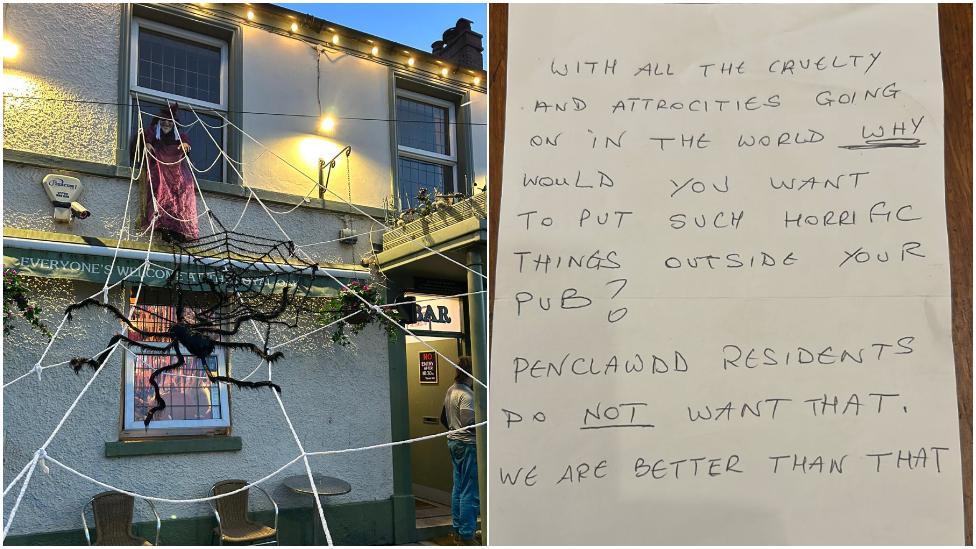 EVERYONE'S WELCOME AT THE
BAR
NO
ENTRY
AFTER
WITH ALL THE CRUELTY
AND ATTROCITIES GOING
ON IN THE WORLD WHY
WOULD YOU WANT
TO PUT SUCH HORRIFIC
THINGS OUTSIDE YOUR
PUB?
PENCLAWDD RESIDENTS
DO NOT WANT THAT.
WE ARE BETTER THAN THAT